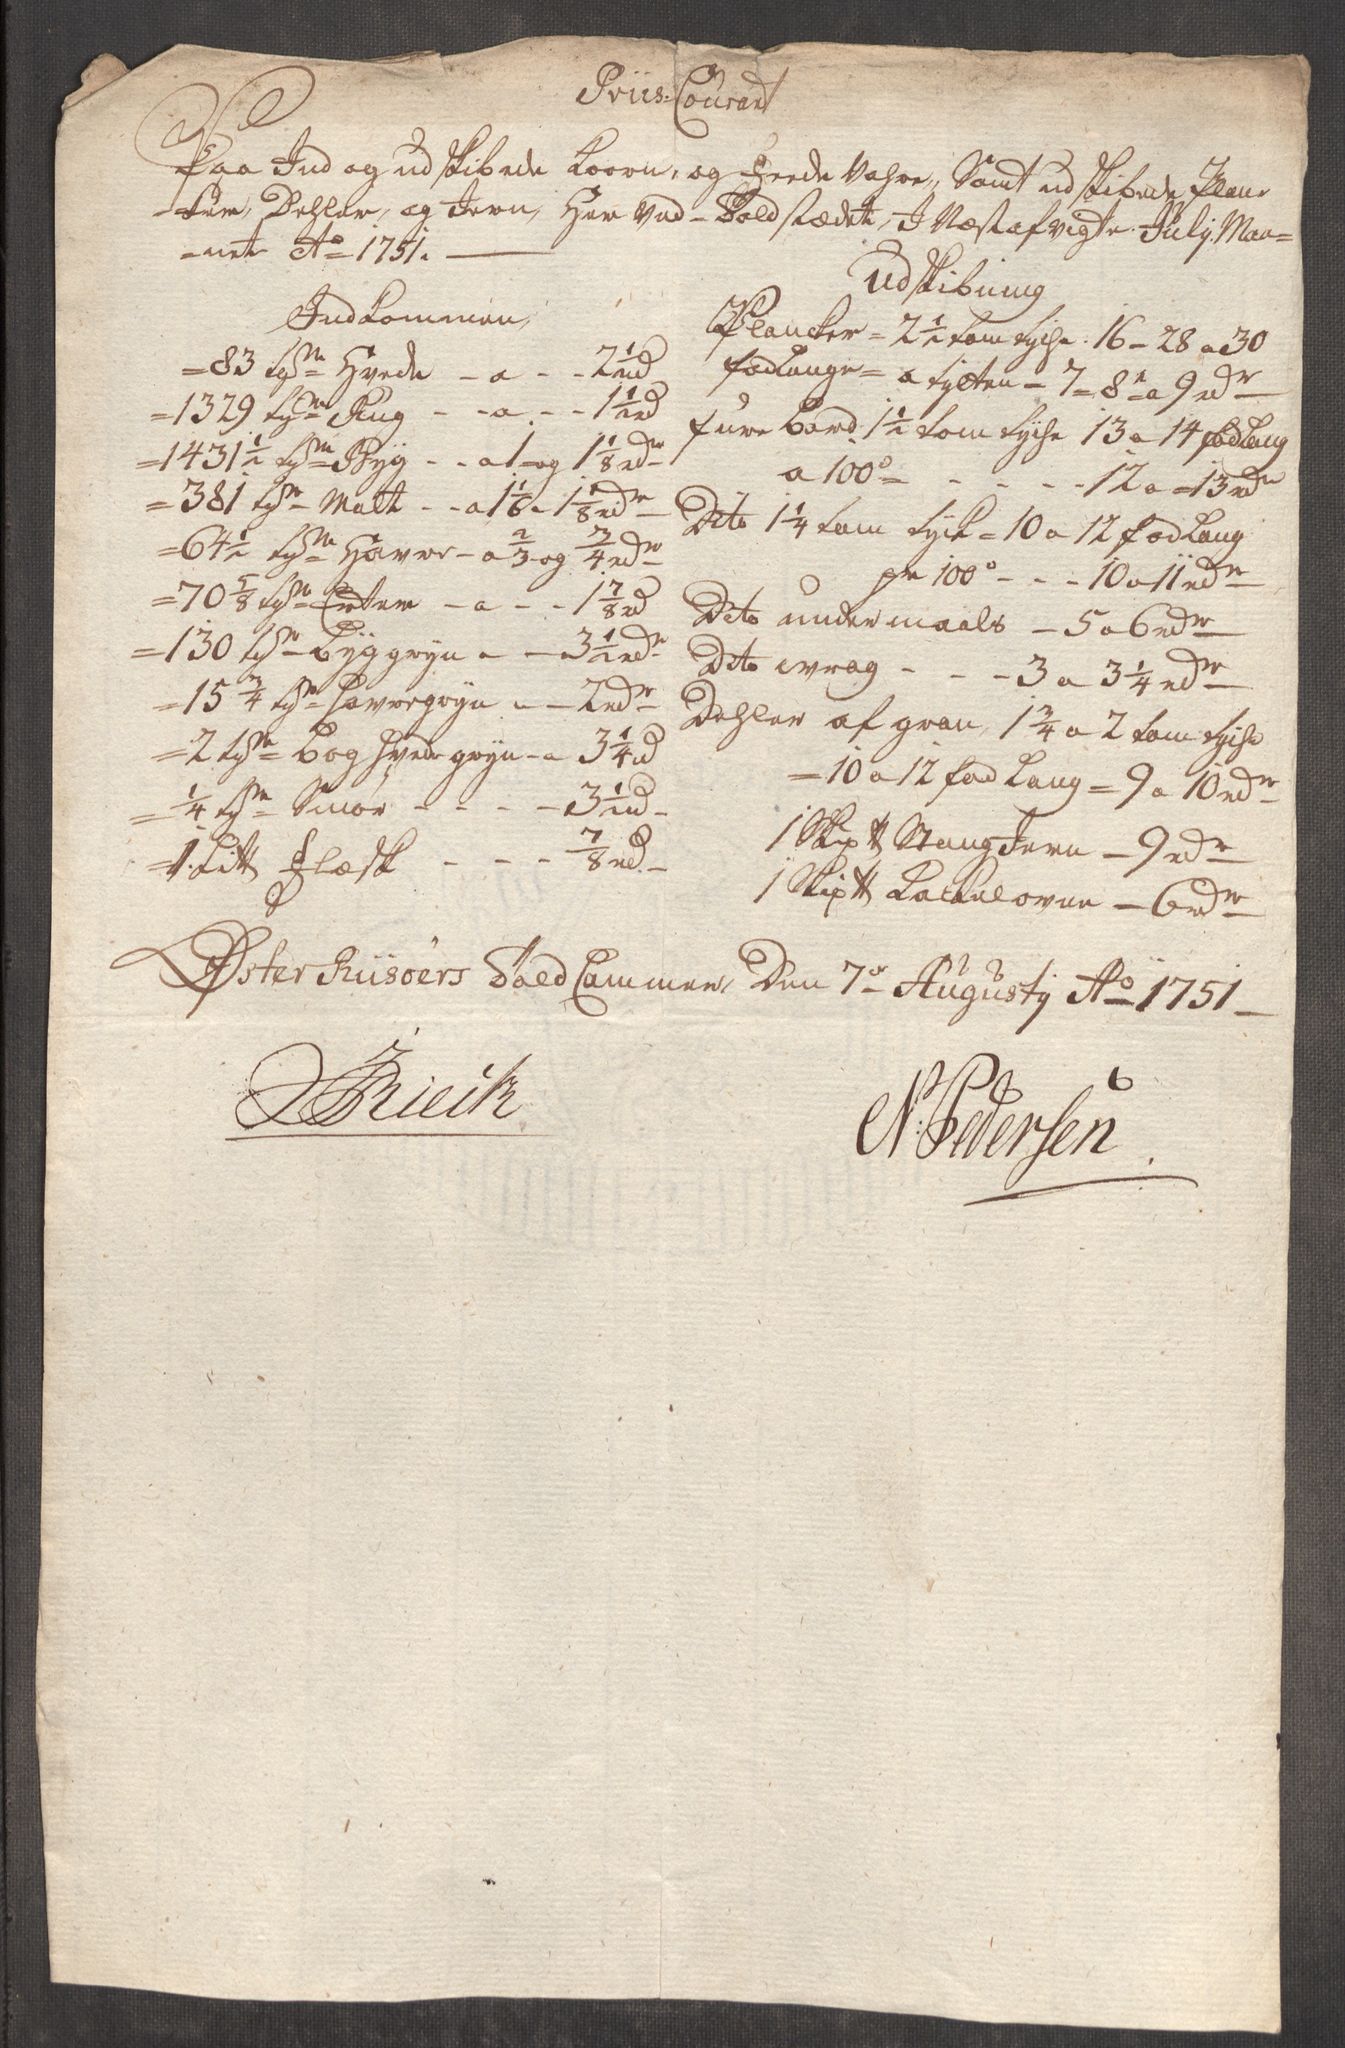 Priis-Courant
Paa Ind og udskibede Koorn, og Feede Vahre, Samt udskibede Plan-
-ker, Dehler, og Jern, Her Ved Toldstædet, I Næstafvigte July Maa=
=net Ao 1751.
Indkommen,
=83 tønr Hvede - a - - 2½ rd
=1329 tønr Rug - - a - - 1½ rd
=1431½ tønr Byg - - a 1 og 1⅛ rdr
=381 tønr Malt - - a 1⅙ - 1⅛ rdr
=64½ tønr Havre - a ⅔ og ¾ rdr
=70⅝ tønr Erter - a - - 1⅞ rd
=130 tønr Byggryn - - a 3½ rdr
=15¾ tønr Havregryn - - 2 rdr
=2 tønr Boghvedegryn - a 3¼ rd
=¼ tønr Smør - - - - 3½ rd
=1. Litt Flæsk - - - ⅞ rd
Udskibning
Plancker = 2½ tom tyche. 16 - 28 a 30
fod Lange = a tylten - 7 = 8 a 9 rdr
furre bord. 1½ tom tyche 13 a 14 fod Lang
a 100° = - - - - 12 a = 13 rdr
Dito 1¼ tom tyck = 10 a 12 fod Lang
pr 100° - - - 10 a 11 rdr
Dito under maals - 5 a 6 rdr
Dito wrag - - - 3 a 3¼ rdr
Dehler af gran, 1¾ a 2 tom tyche
=10 a 12 fod Lang = 9 a 10 rdr
1 Skip℔ Stang Jern - 9 rdr
1 Skip℔ Kackelovne - 6 rdr
Øster Riisøers Told Cammer, Den 7de Augusty Ao 1751
N: Pedersen